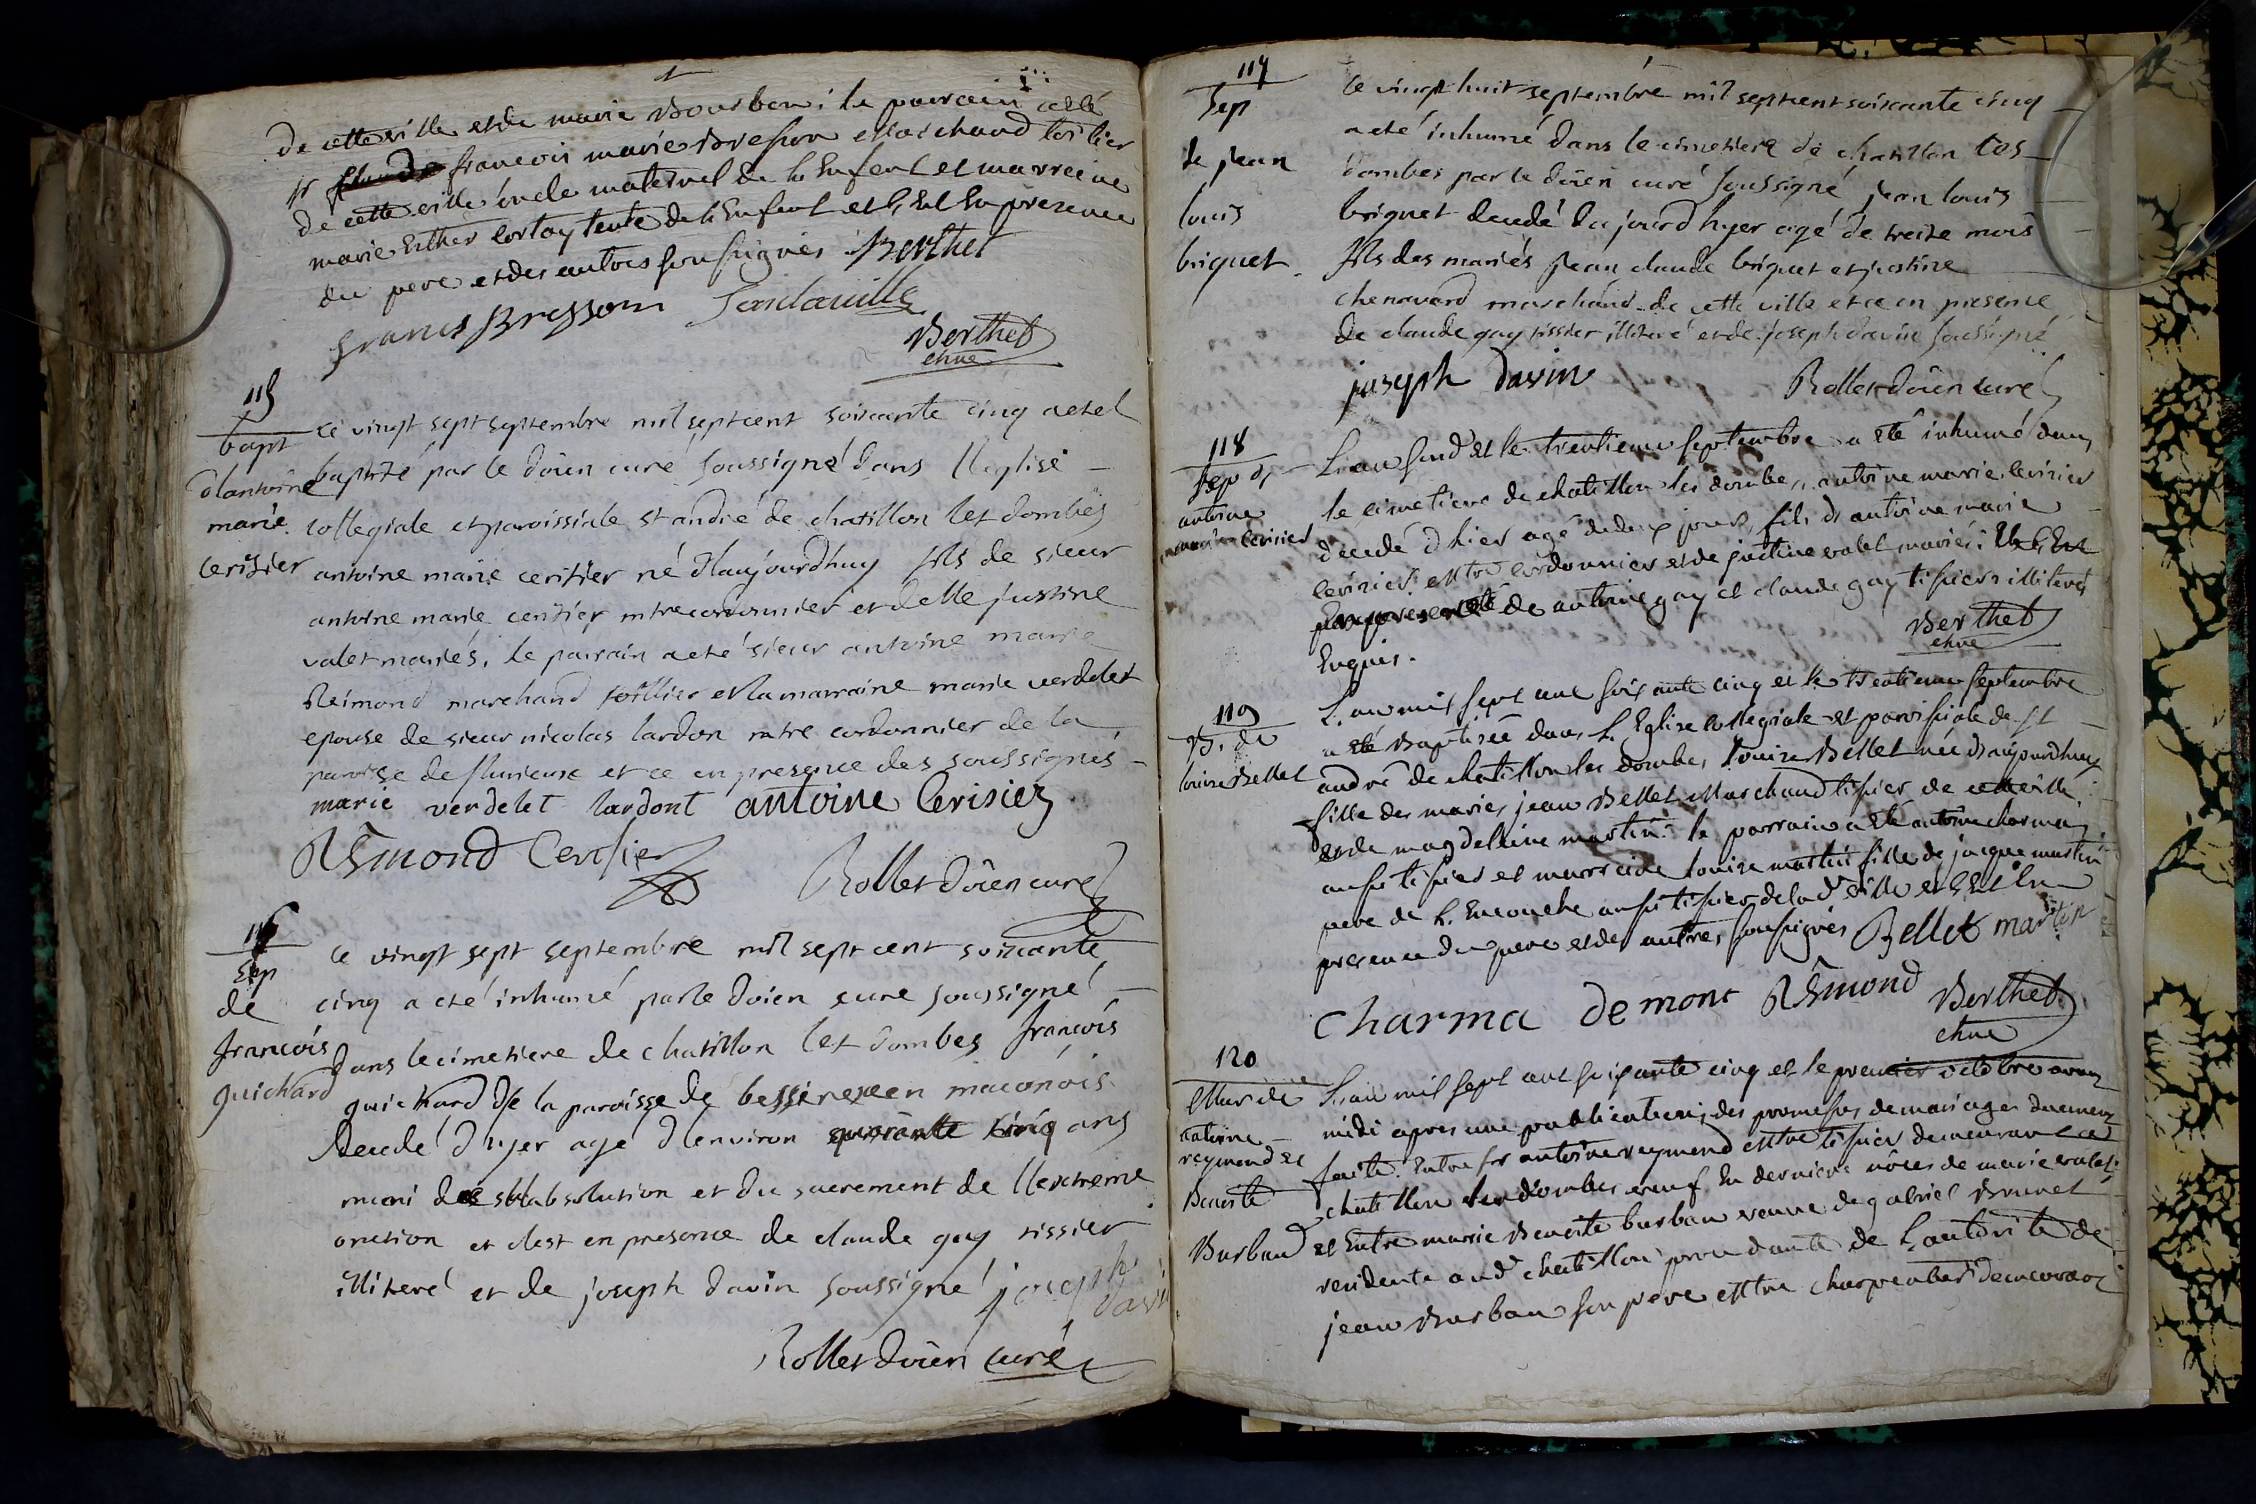 de cette ville et de marie Bourbon ; le parrain a été
sr françois marie Bresson marchand toilier
de cette ville oncle maternel de l'Enfent et marreine
marie Esther tente de l'Enfent et C'Est En presence
du pere et des autres soussignés Berthet
francs Bresson
Berthet
chne
115
bapt
d'antoine
marie
cerisier
Le vingt sept septembre mil sept cent soixante cinq a eté
baptizé par le doïen curé soussigné dans l'eglise
collegiale et paroissiale st andré de chatillon les dombes
antoine marie cerisier né d'aujourdhuy fils de sieur
antoine marie cerisier mtre cordonnier et de delle justine
valet mariés, le parrain a eté sieur antoine marie
Reimond marchand toillier et la marraine marie verdelet
epouse de sieur nicolas lardon mtre cordonnier de la
paroisse de flurieux et ce en presence des soussignés
marie verdelet lardont antoine Cerisier
REmond Cerisier
Rollet doïen curé
116
Sep
de
françois
guichard
Le vingt sept septembre mil sept cent soixante
cinq a eté inhumé par le doien curé soussigné
dans le cimetiere de chatillon les dombes françois
guichard de la paroisse de en maconois
decedé d'hyer agé d'environ quarante cinq ans
muni de l'absolution et du sacrement de l'extreme
onction et c'est en presence de claude gay tissier
illiteré et de joseph davin soussigné joseph
davin
Rollet doïen curé
117
Sep
de jean
louis
briquet
Le vingt huit septembre mil sept cent soixante cinq
a eté inhumé dans le cimetiere de chatillon les
dombes par le doïen curé soussigné jean louis
briquet decedé du jour d'hyer agé de treize mois
fils des mariés jean claude briquet et justine
chenavard marchand de cette ville et ce en presence
de claude gay tissier illiteré et de joseph davin soussigné
joseph davin
Rollet doïen curé
118
Sep d'
antoine
marie cerisier
L'an susd et le trentieme septembre a eté inhumé dans
le cimetiere de chatillon les dombes, antoine marie cerisier
decedé d'hier agé de deux jours, fils d'antoine marie
cerisier mtre cordonnier et de justine valet mariés ; Et C'Est
En presence de antoine gay et claude gay tissiers illiterés
Enquis.
Berthet
chne
119
B. de
louise Bellet
L'an mil sept cent soixante cinq et le trentieme septembre
a eté Baptisée dans L'Eglise collegiale et paroissiale de st
andré de chatillon les dombes louise Bellet née d'aujourdhuy
fille des mariés jean Bellet Marchand tissier de cette ville
et de magdelaine martin : le parrain a eté antoine charma
aussi tissier et marreine louise martin fille de jacque martin
pere de L'accouchée aussi tissier de lad. ville et C'Est En
presence du pere et des autres soussignés Bellet martin
charma de mont REmond Berthet
chne
120
Mar de
antoine
reymond et
Benoite
Burban
L'an mil sept cent soixante cinq et le premier octobre avant
midi apres une publication des promesses de mariages duement
faite. Entre sr antoine reymond mtre tissier demeurant a
chatillon les dombes veuf En dernieres nôces de marie valet
et Entre marie Benoite burban veuve de gabriel Brunet
residente aud chatillon procedante de L'autorité de
jean Burban son pere mtre charpentier demeurant